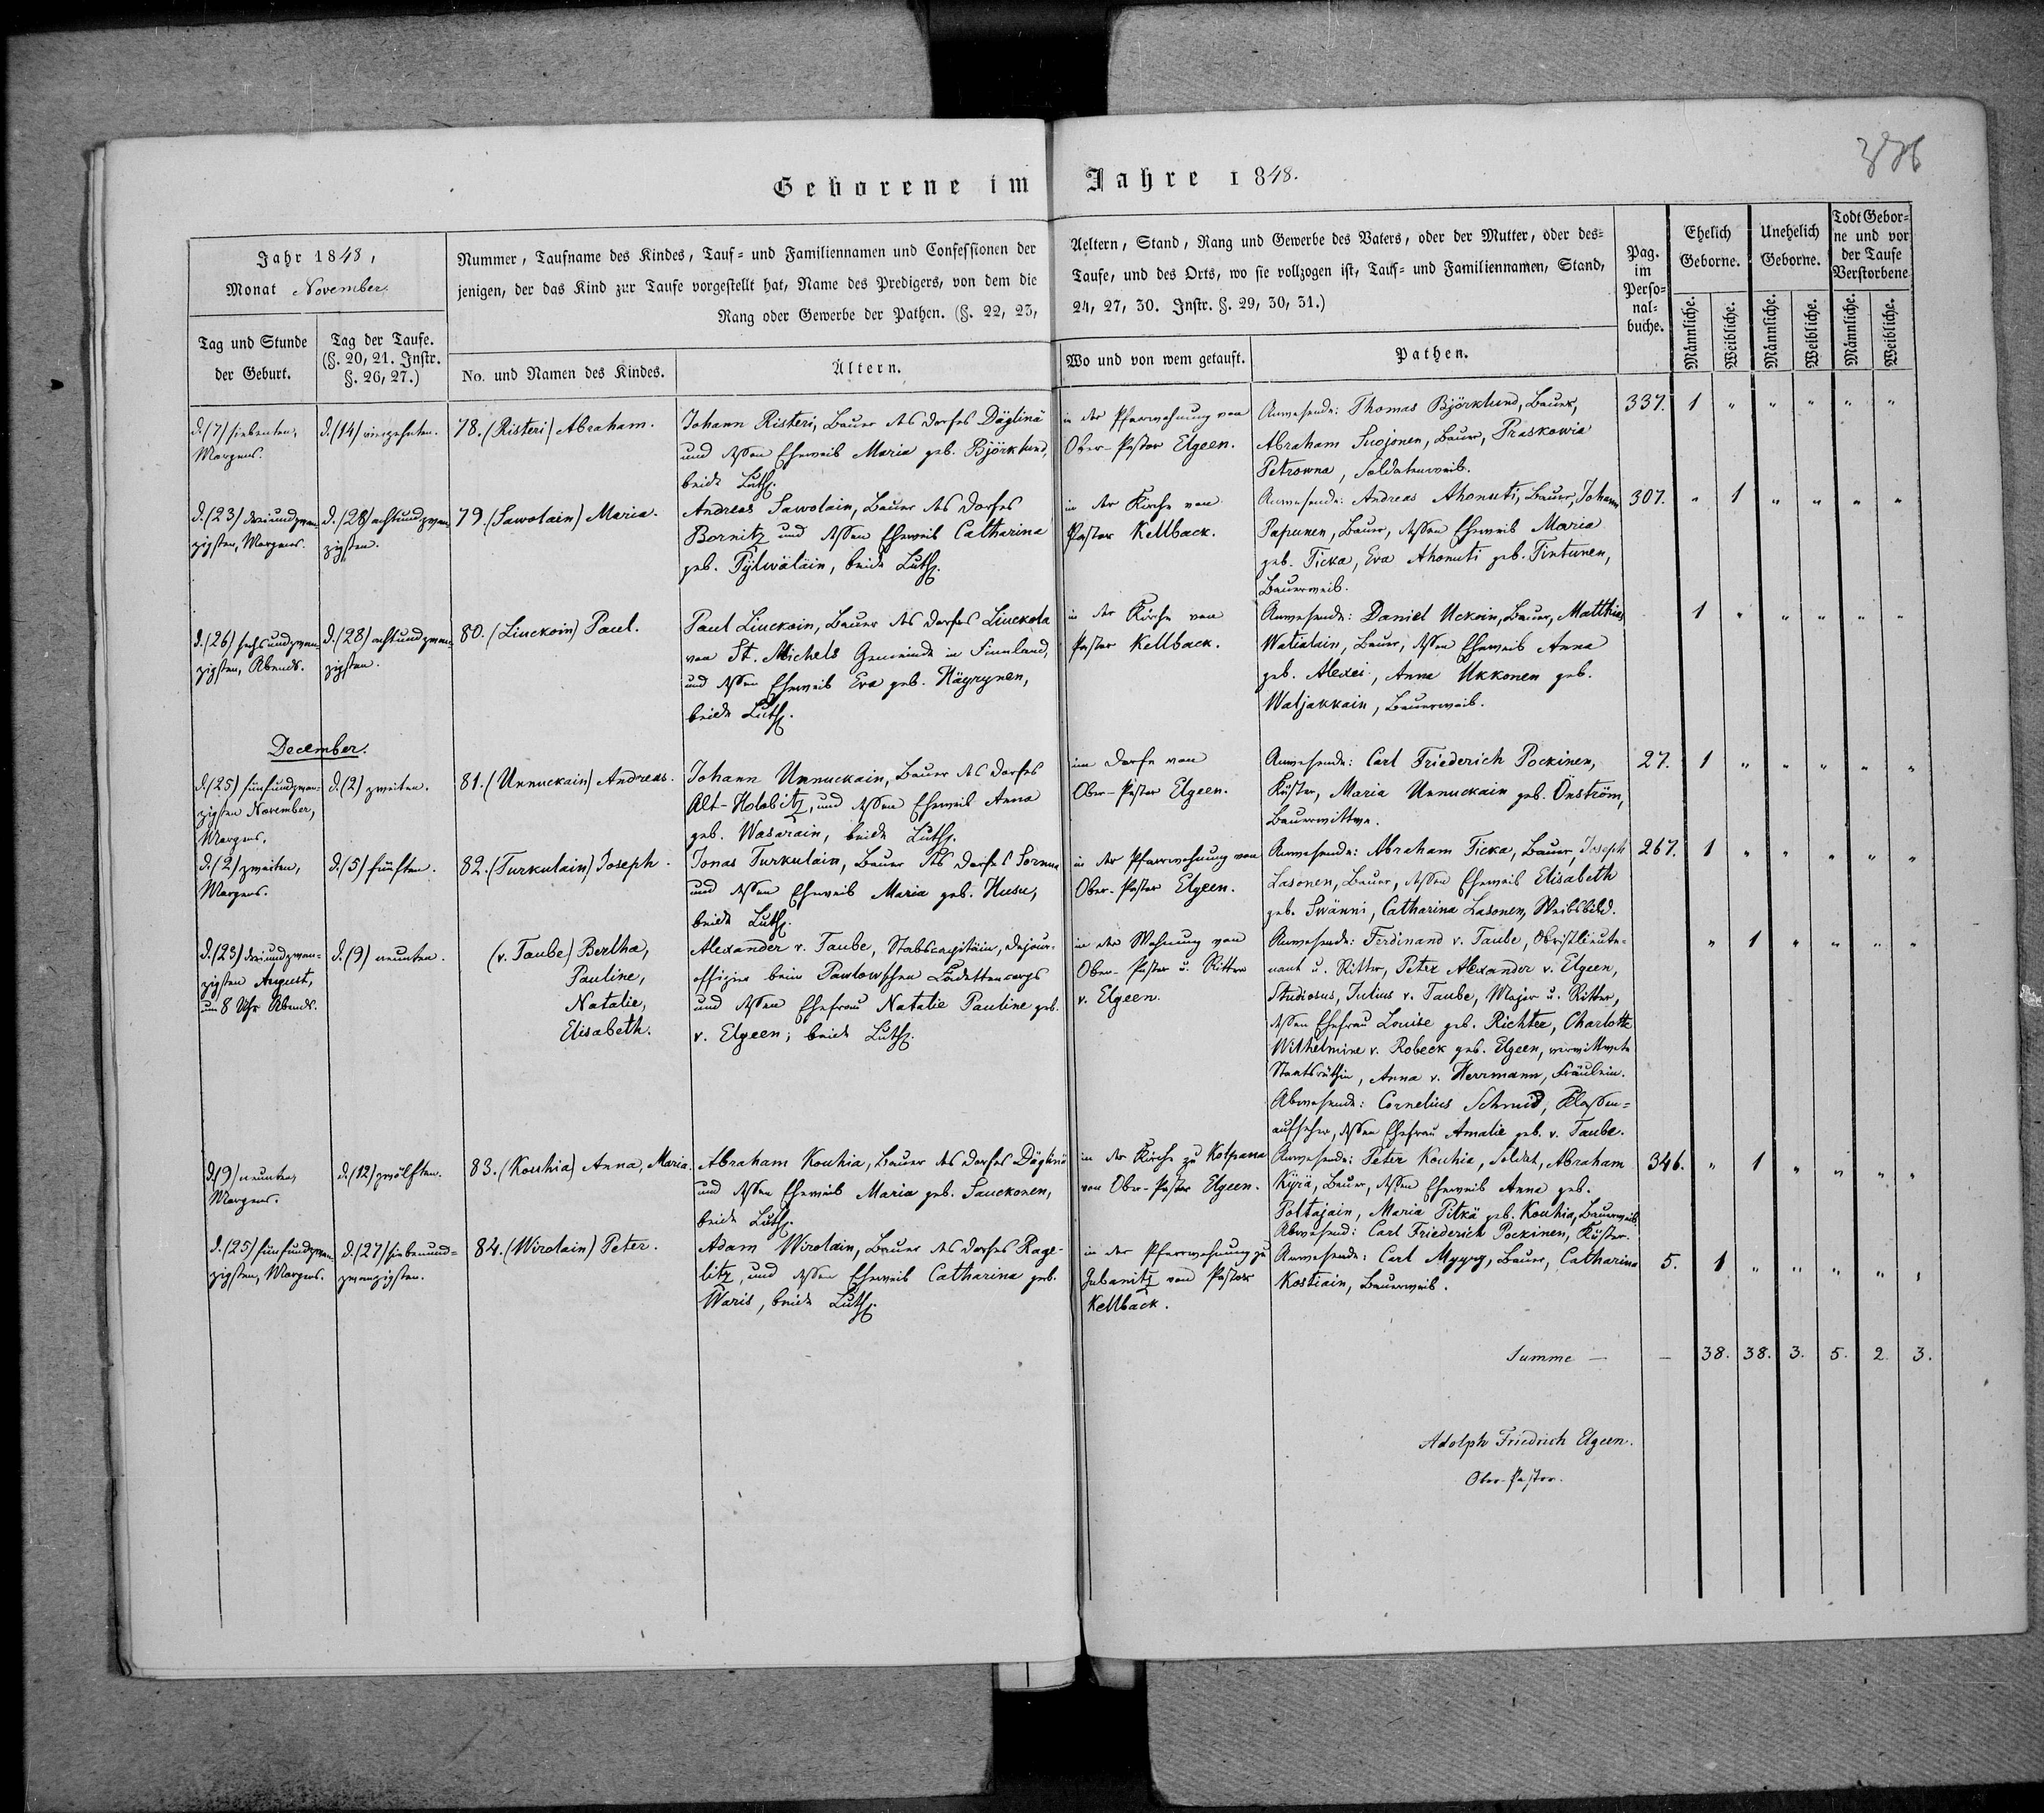 386
Geborene im Jahre 1848.
Jahr 1848,
Monat November.
Nummer, Taufname des Kindes, Tauf- und Familiennamen und Confessionen der
jenigen, der das Kind zur Taufe vorgestellt hat, Name des Predigers, von dem die
Rang oder Gewerbe der Pathen. (§. 22, 23,
Aeltern, Stand, Rang und Gewerbe des Vaters, oder der Mutter, oder des-
Taufe, und des Orts, wo sie vollzogen ist, Tauf- und Familiennamen, Stand,
24, 27, 30. Instr. §. 29, 30, 31.)
Pag.
im
Perso-
nal-
buche.
Ehelich
Geborne.
Unehelich
Geborne.
Todt Gebor-
ne und vor
der Taufe
Verstorbene
Männliche.
Weibliche.
Männliche.
Weibliche.
Männliche.
Weibliche.
Tag und Stunde
der Geburt.
Tag der Taufe.
(§. 20, 21. Instr.
§. 26, 27.)
No. und Namen des Kindes.
Ältern.
Wo und von wem getauft.
Pathen.
d. (7) siebenten,
Morgens.
d. (14) vierzehnten.
78. (Risteri) Abraham.
Johann Risteri, Bauer des Dorfes Däglinä
und dessen Eheweib Maria geb. Björklund,
beide Luth.
in der Pfarrwohnung von
Ober-Pastor Elgeen.
Anwesende: Thomas Björklund, Bauer,
Abraham Suojonen, Bauer, Praskowia
Petrowna, Soldatenweib.
337. 1 " " " " "
d. (23) dreiundzwan-
zigsten, Morgens.
d. (28) achtundzwan-
zigsten.
79. (Sawolain) Maria.
Andreas Sawolain, Bauer des Dorfes
Bornitz und dessen Eheweib Catharina
geb. Pylwäläin, beide Luth.
in der Kirche von
Pastor Kellback.
Anwesende: Andreas Ahonuti, Bauer, Johann
Papunen, Bauer, dessen Eheweib Maria
geb. Ticka, Eva Ahonuti geb. Tintunen,
Bauerweib.
307. " 1 " " " "
d. (26) sechsundzwan-
zigsten, Abends.
d. (28) achtundzwan-
zigsten.
80. (Liuckoin) Paul.
Paul Liuckoin, Bauer des Dorfes Liuckola
von St. Michels Gemeinde in Finnland,
und dessen Eheweib Eva geb. Häyrynen,
beide Luth.
in der Kirche von
Pastor Kellback.
Anwesende: Daniel Uckoin, Bauer, Matthias
Watialain, Bauer, dessen Eheweib Anna
geb. Alexei, Anna Ukkonen geb.
Waljakkain, Bauerweib.
1 " " " " "
December.
d. (25) fünfundzwan-
zigsten November,
Morgens.
d. (2) zweiten.
81. (Unnuckain) Andreas.
Johann Unnuckain, Bauer des Dorfes
Alt-Holobitz, und dessen Eheweib Anna
geb. Wasarain, beide Luth.
im Dorfe von
Ober-Pastor Elgeen.
Anwesende: Carl Friederich Pockinen,
Küster, Maria Unnuckain geb. Önström,
Bauerwittwe.
27. 1 " " " " "
d. (2) zweiten,
Morgens.
d. (5) fünften.
82. (Turkulain) Joseph.
Jonas Turkulain, Bauer des Dorfes Sornua
und dessen Eheweib Maria geb. Husu,
beide Luth.
in der Pfarrwohnung von
Ober-Pastor Elgeen.
Anwesende: Abraham Ticka, Bauer, Joseph
Lasonen, Bauer, dessen Eheweib Elisabeth
geb. Swänni, Catharina Lasonen, Weibsbild.
267. 1 " " " " "
d. (23) dreiundzwan-
zigsten August,
um 8 Uhr Abends.
d. (9) neunten.
(v. Taube) Bertha,
Pauline,
Natalie,
Elisabeth.
Alexander v. Taube, Stabscapitäin, dejour-
offizier beim Pawlowschen Cadettencorps
und dessen Ehefrau Natalie Pauline geb.
v. Elgeen; beide Luth.
in der Wohnung von
Ober-Pastor u. Ritter
v. Elgeen.
Anwesende: Ferdinand v. Taube, Obristlieute-
nant u. Ritter, Peter Alexander v. Elgeen,
Studiosus, Julius v. Taube, Major u. Ritter,
dessen Ehefrau Louise geb. Richter, Charlotte
Wilhelmine v. Robeck geb. Elgeen, verwittwete
Staatsräthin, Anna v. Herrmann, Fräulein.
Abwesende: Cornelius Schmid, Klassen-
aufseher, dessen Ehefrau Amalie geb. v. Taube.
" 1 " " " "
d. (9) neunten,
Morgens.
d. (12) zwölften.
83. (Kouhia) Anna, Maria.
Abraham Kouhia, Bauer des Dorfes Däglinä
und dessen Eheweib Maria geb. Sauckonen,
beide Luth.
in der Kirche zu Kolpana
von Ober-Pastor Elgeen.
Anwesende: Peter Kouhia, Soldat, Abraham
Kyrä, Bauer, dessen Eheweib Anna geb.
Poltajain, Maria Pitkä geb. Kouhia, Bauerweib.
Abwesend: Carl Friederich Pockinen, Küster.
346. " 1 " " " "
d. (25) fünfundzwan-
zigsten, Morgens.
d. (27) siebenund-
zwanzigsten.
84. (Wirolain) Peter.
Adam Wirolain, Bauer des Dorfes Rage-
litz, und dessen Eheweib Catharina geb.
Waris, beide Luth.
in der Pfarrwohnung zu
Gubanitz von Pastor
Kellback.
Anwesende: Carl Myyry, Bauer, Catharina
Kostiain, Bauerweib.
5. 1 " " " " "
Summe — — 38. 38. 3. 5. 2. 3.
Adolph Friedrich Elgeen.
Ober-Pastor.